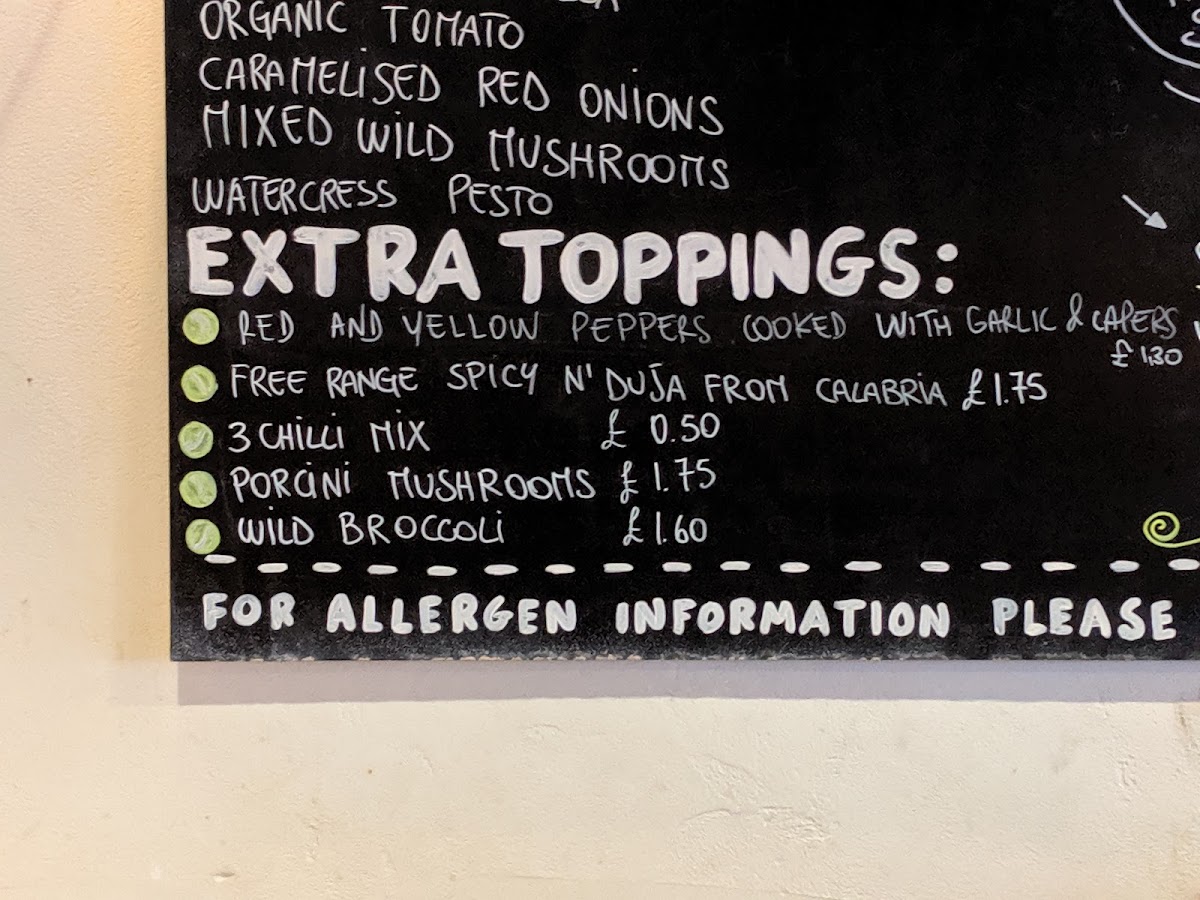 ORGANIC TOMATO
CARAMELISED RED ONIONS
MIXED WILD MUSHROOMS
WATERCRESS PESTO
EXTRA TOPPINGS:
RED AND YELLOW PEPPERS COOKED WITH GARLIC & CAPERS
£ 1.30
FREE RANGE SPICY N'DUJA FROM CALABRIA £1.75
3 CHILLI MIX £ 0.50
PORCINI MUSHROOMS £ 1.75
WILD BROCCOLI £1.60
FOR ALLERGEN INFORMATION PLEASE